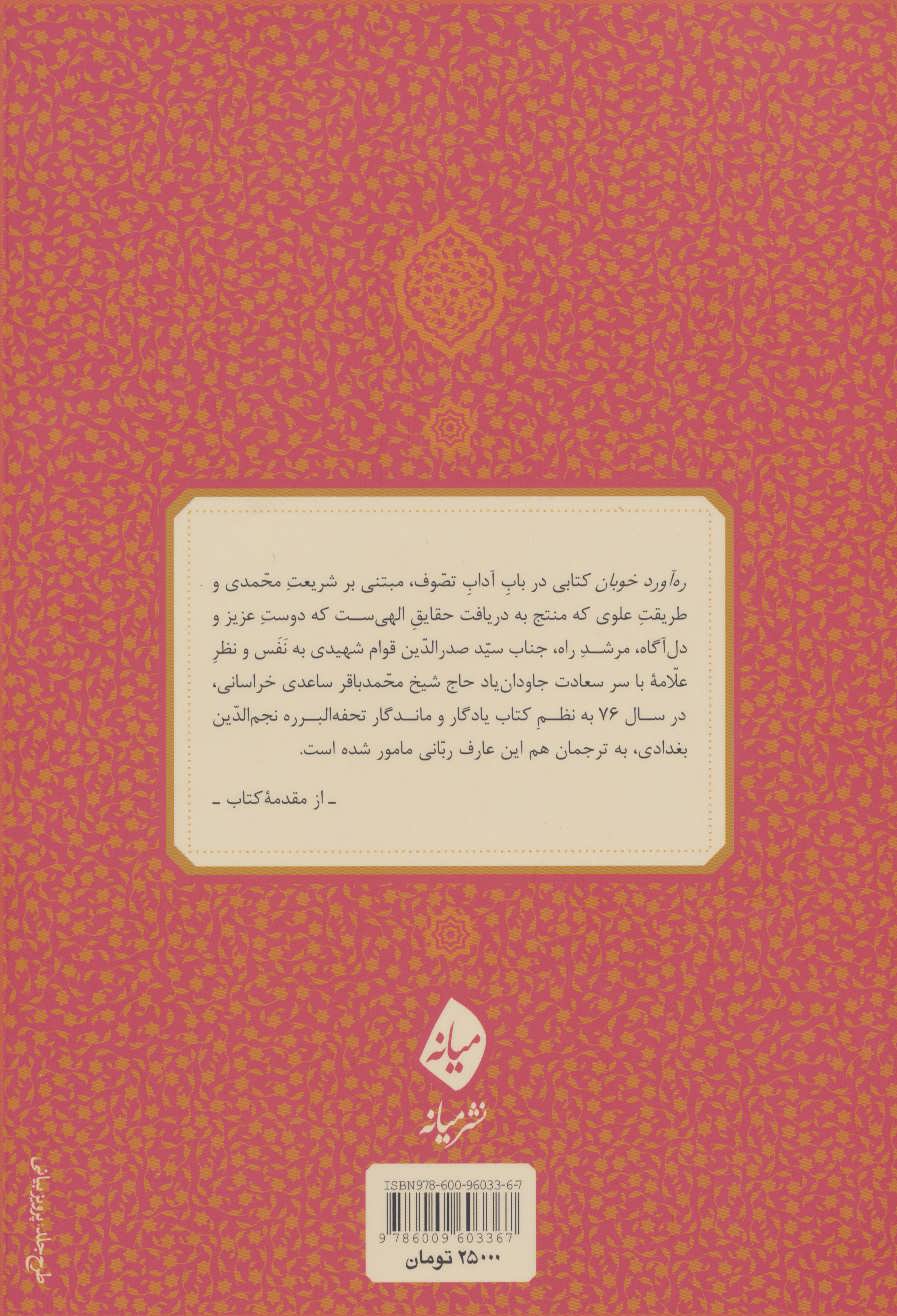 ره‌آورد خوبان کتابی در بابِ آدابِ تصّوف، مبتنی بر شریعتِ محّمدی و
طریقتِ علوی که منتج به دریافت حقایقِ الهی‌ست که دوستِ عزیز و
دل‌آگاه، مرشدِ راه، جناب سیّد صدرالدّین قوام شهیدی به نَفَس و نظرِ
علّامهٔ با سر سعادت جاودان‌یاد حاج شیخ محّمدباقر ساعدی خراسانی،
در سال ۷۶ به نظمِ کتاب یادگار و ماندگار تحفه‌البرره نجم‌الدّین
بغدادی، به ترجمان هم این عارف ربّانی مامور شده است.
ـ از مقدمهٔ کتاب ـ
میانه
نشر میانه
ISBN978-600-96033-6-7
9 786009 603367
۲۵۰۰۰ تومان
طرح جلد: پرویز بیانی